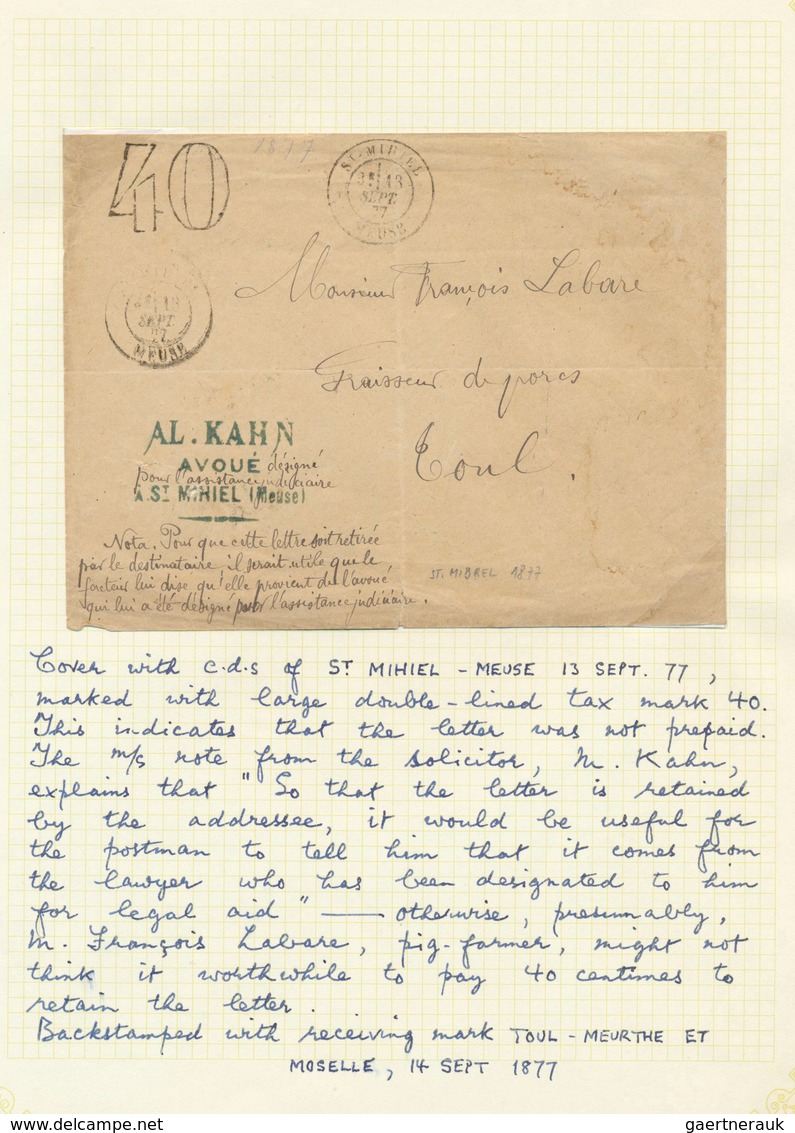 40
1877
ST-MIHIEL
3E 13
SEPT.
77
MEUSE
SEPT.
77
MEUSE
Monsieur François Labare
Graisseur de porcs
Toul.
AL. KAHN
AVOUÉ désigné
pour l'assistance judiciaire
A ST MIHIEL (Meuse)
Nota. Pour que cette lettre soit retirée
par le destinataire, il serait utile que le
facteur lui dise qu'elle provient de l'avoué
qui lui a été désigné pour l'assistance judiciaire.
ST. MIBREL 1877
Cover with c.d.s of ST MIHIEL - MEUSE 13 SEPT. 77,
marked with large double-lined tax mark 40.
This indicates that the letter was not prepaid.
The m/s note from the solicitor, M. Kahn,
explains that "So that the letter is retained
by the addressee, it would be useful for
the postman to tell him that it comes from
the lawyer who has been designated to him
for legal aid" — otherwise, presumably,
M. François Labare, pig-farmer, might not
think it worthwhile to pay 40 centimes to
retain the letter.
Backstamped with receiving mark TOUL - MEURTHE ET
MOSELLE, 14 SEPT 1877
gaertnerauk